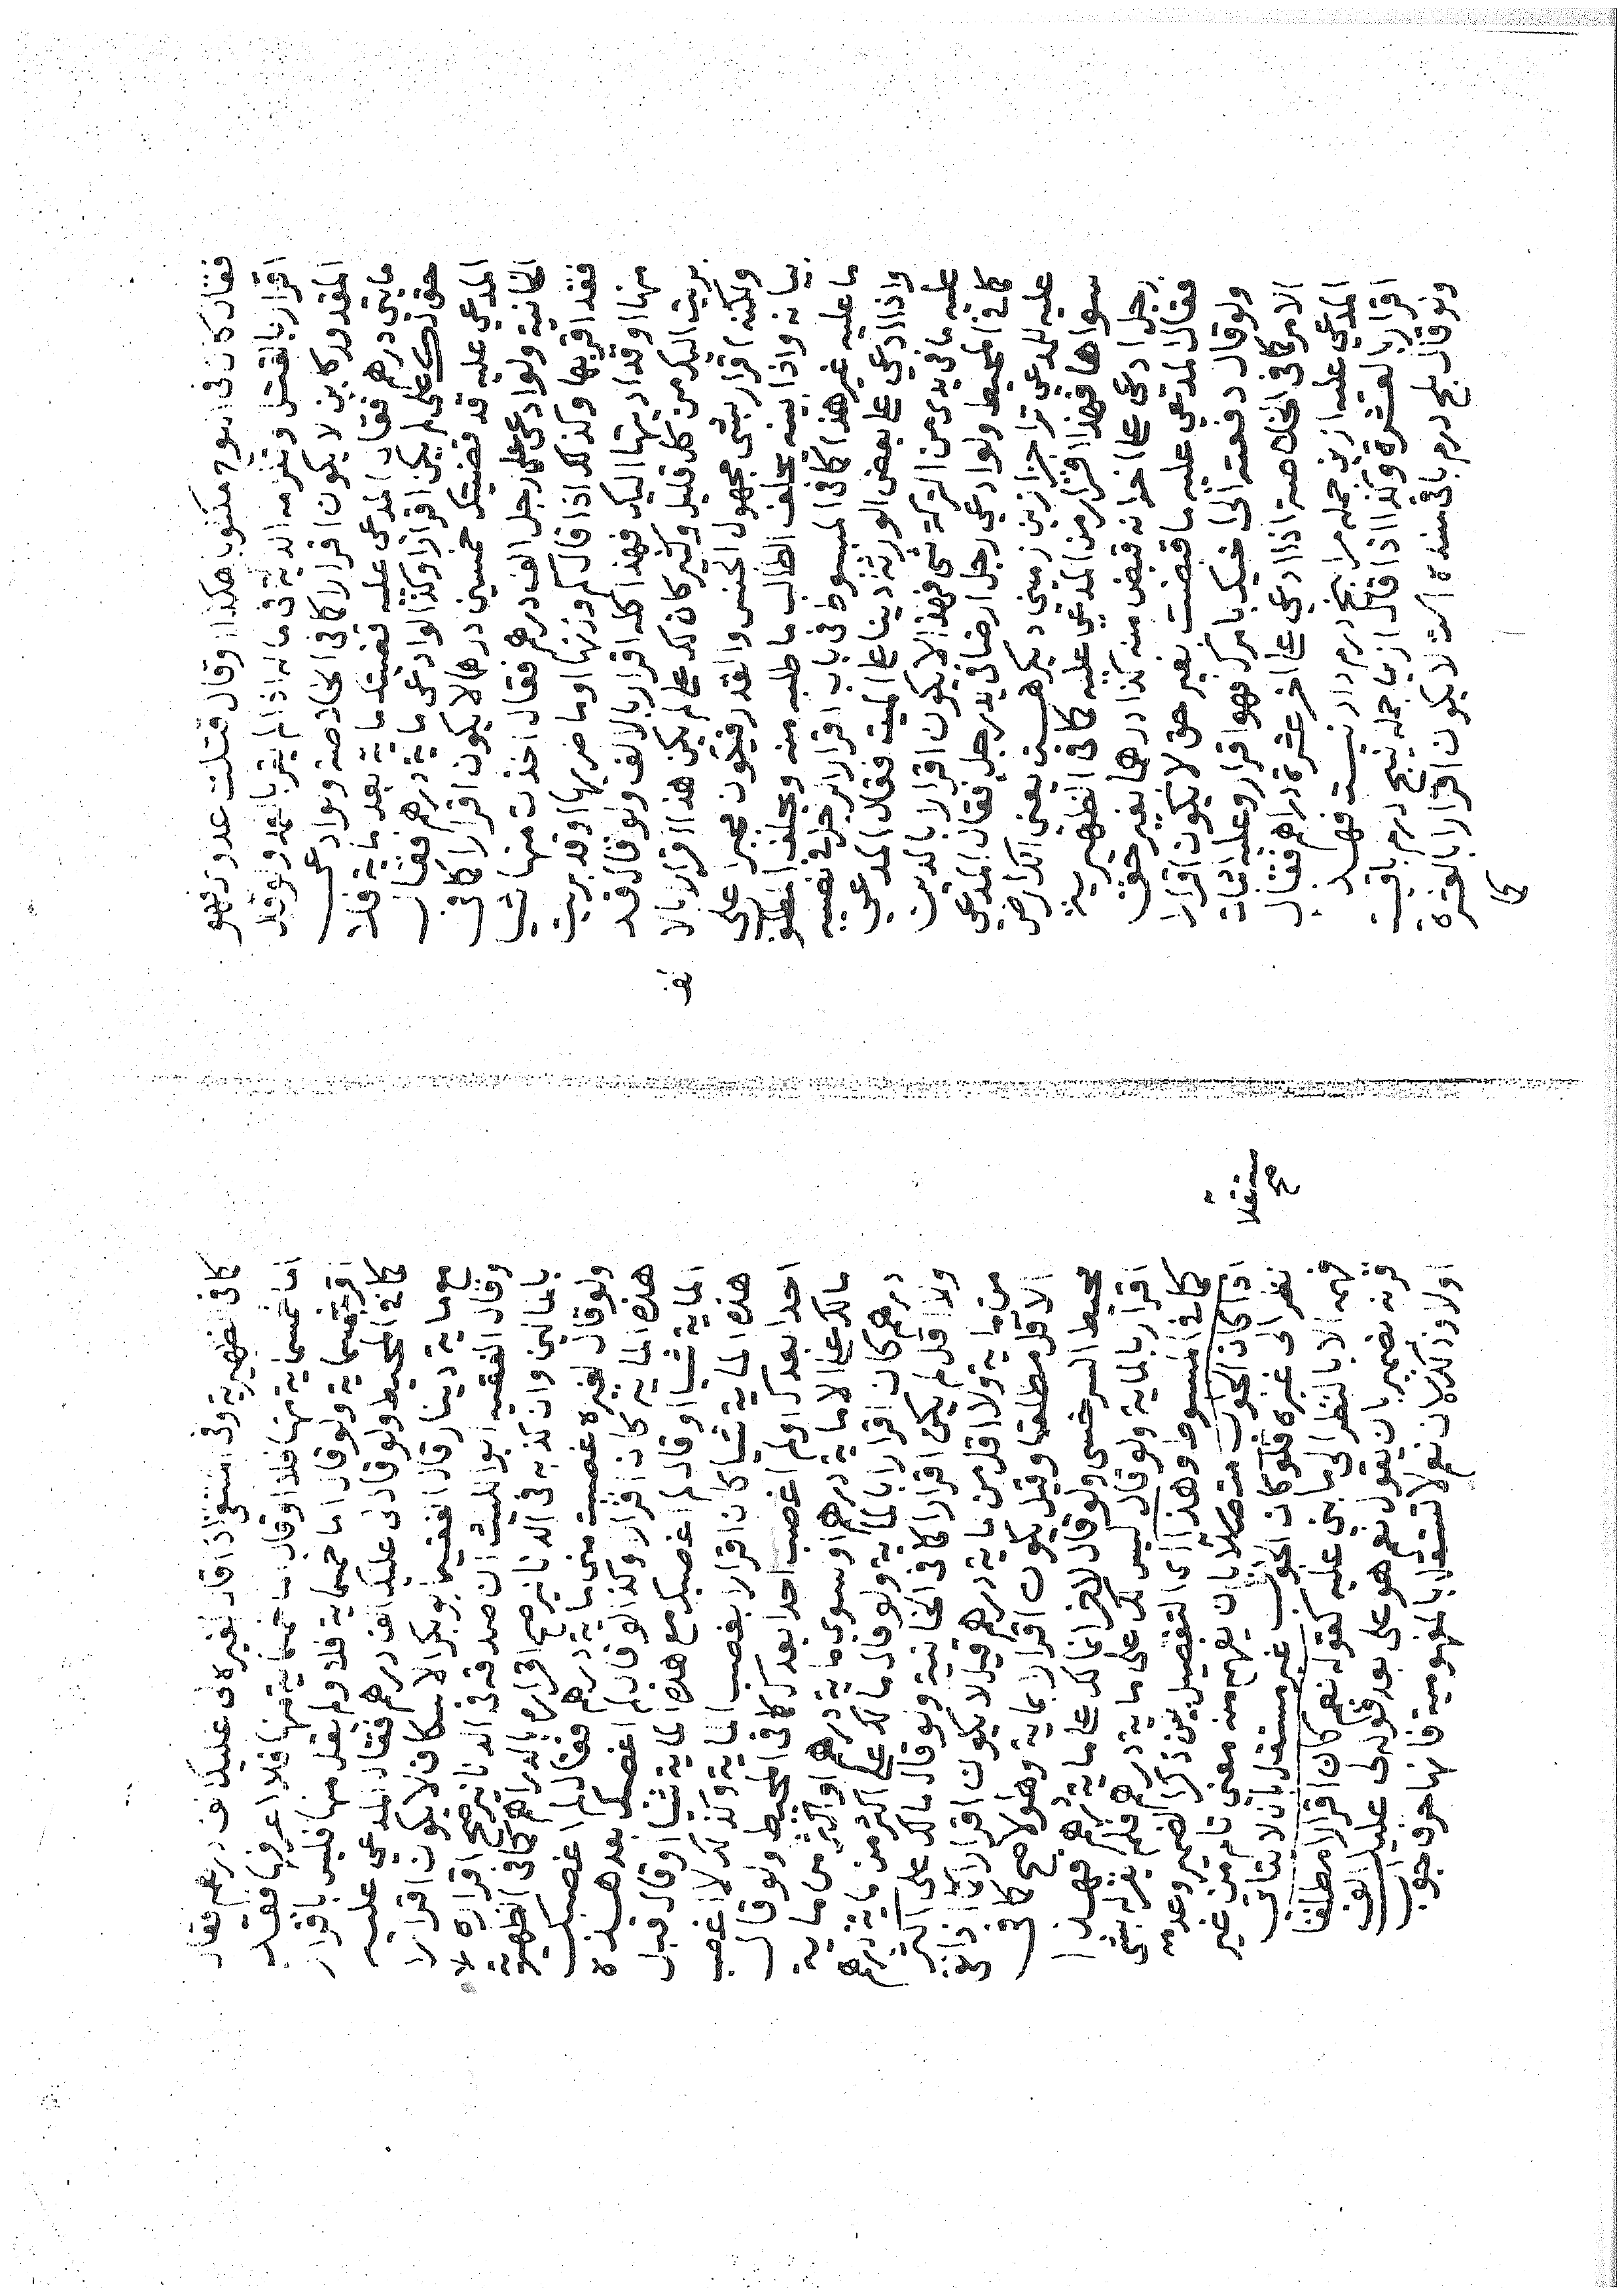 فقال كان فى اللوح مكتوبا هكذا او قال قتلت عدوى فهو
اقرار بالقتل وتلزمه الدية فى ماله اذا لم يقر بالعمد ولو قيل
المقدور كاين لا يكون اقرارا كما فى الخلاصة ولو ادعى
مايتى درهم فقال المدعى عليه قضيتك ماية بعد ماية فلا
حق لك على لم يكن اقرارا وكذا لو ادعى ماية درهم فقال
المدعى عليه قد قضيتك خمسين درهما لا يكون اقرارا كما فى
الخانية ولو ادعى على رجل الف درهم فقال اخذت منها شيا
فقد اقر بها وكذلك اذا قال كم وزنها او ما ضربها او قد بريت
منها او قد اديتها اليك فهذا كله اقرار بالالف ولو قال قد
بريت اليك من كل قليل وكثير كان لك على لم يكن هذا اقرارا بالا
لف
ولكنه اقرار بشى مجهول الجنس والقدر فيكون مجبرا على
بيانه واذا بينه يحلف الطالب ما طلبه منه ويحلف المطلوب
ما عليه غير هذا كما فى المبسوط فى باب اقرار الرجل فى نصيبه
واذا ادعى على بعض الورثة دينا على الميت فقال المدعى
عليه ما فى يدى من التركة شى فهذا لا يكون اقرارا بالدين
كما فى المحيط ولو ادعى رجل ارضا فى يد رجل فقال المدعى
عليه للمدعى ترا جز ازين زمينى ديكر هست يعنى لك ارض
سواها فهذا اقرار من المدعى عليه كما فى الظهيرية
رجل ادعى على اخر انه قبض منه كذا درهما بغير حق
فقال المدعى عليه ما قبضت بغير حق لا يكون اقرارا
ولو قال دفعته الى اخيك بامرك فهو اقرار وعليه اثبات
الامر كما فى الخلاصة اذا ادعى على اخر عشرة دراهم فقال
المدعى عليه ازين جمله مرا پنج درم دادنيست فهذا
اقرار بالعشرة وكذا اذا قال ازين جمله پنج درم باقيست
ولو قال پنج درم باقى مانده است لا يكون اقرارا بالعشرة
كما
كما فى الظهيرية وفى المنتقى اذا قال لغيره لى عليك الف درهم فقال
اما خمسماية منها فلا او قال اما خمسماية منها فلا اعرفها فقد
اقر بخمسماية ولو قال اما خمسماية فلا ولم يقل منها فليس باقرار
كما فى المحيط ولو قال لى عليك الف درهم فقال المدعى عليه
مع ماية دينار قال الفقيه ابو بكر الاسكاف لا يكون اقرارا
وقال الفقيه ابو الليث ان صدقه فى الدنانير صح اقراره
بالمالين وان كذبه فى الدنانير صح اقراره بالدراهم كما فى الظهيرية
ولو قال لغيره غصبت منى ماية درهم فقال لم اغصبك
هذه الماية كان اقرارا وكذا لو قال لم اغصبك بعد هذه
الماية شيا او قال لم اغصبك مع هذه الماية شيا او قال قبل
هذه الماية شيا كان اقرارا بغصب الماية وكذلك لا اغصب
احدا بعدك او لم اغصب احدا بعدك كما فى المحيط ولو قال
مالك على الا ماية درهم او سوى ماية درهم او اكثر من ماية
درهم كان اقرارا بالماية ولو قال مالك على اكثر من ماية درهم
ولا اقل لم يكن اقرارا كما فى الخانية ولو قال مالك على اكثر
من ماية ولا اقل من ماية درهم قيل لا يكون اقرارا
الاقل مطلقا وقيل يكون اقرارا بماية وهو الاصح كما فى
محيط السرخسى ولو قال لاخر انما لك على ماية درهم فهذا
اقرار بالماية ولو قال ليس لك على ماية درهم فلم يقر له بشى
كما فى المبسوط وهذا اى التفصيل بين ذكر الضمير وعدمه
اذا كان الجواب مستقلا بان يفهم منه معنى تام من غير
نظر الى غيره فلو كان الجواب غير مستقل بان لا يتاتى
فهمه الا بالنظر الى ما بنى عليه كقوله نعم كان اقرارا مطلقا
قرنه بضمير بان يقول نعم هو على بعد قوله لى عليك الف
اولا وذلك لان نعم لا تستقل بالمفهومية فانها حرف جواب